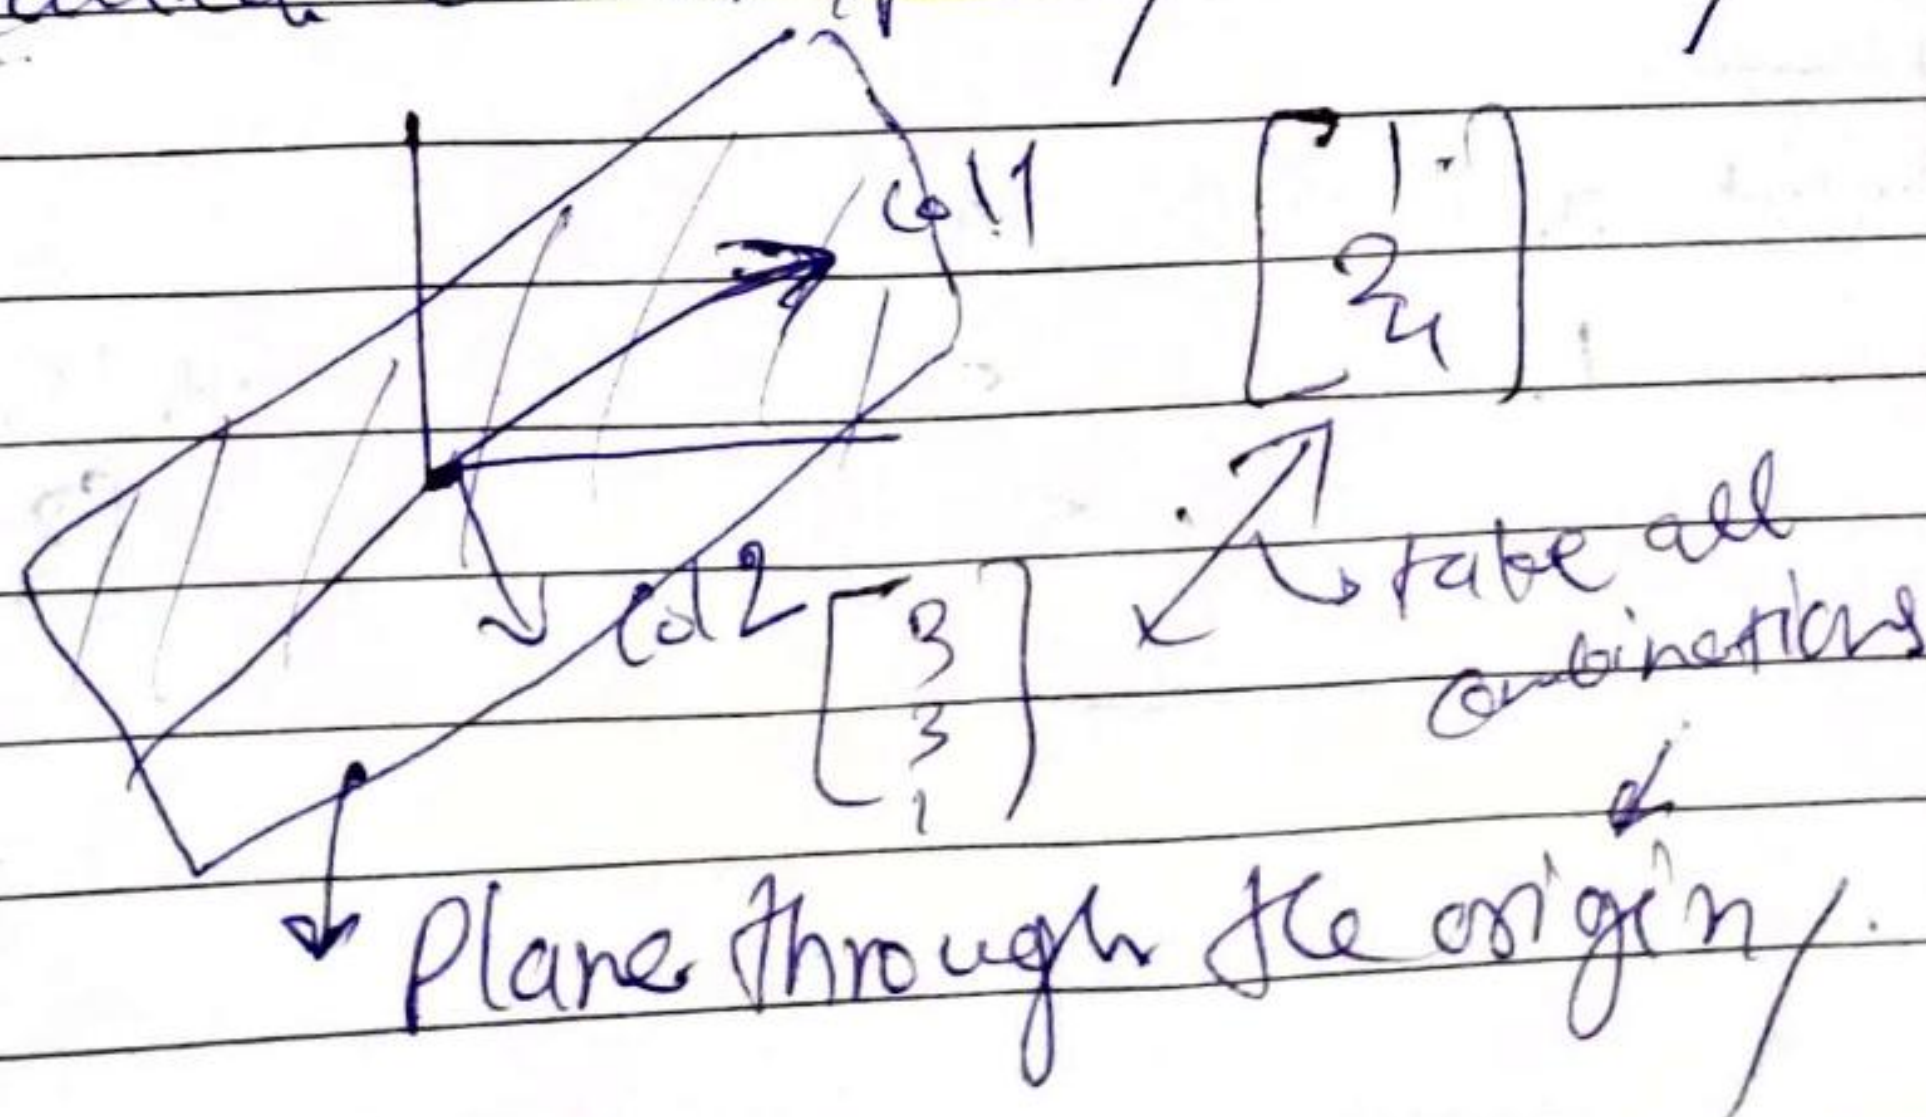 col1
[1
2
4]
col2
[3
3
1]
take all
combinations
Plane through the origin